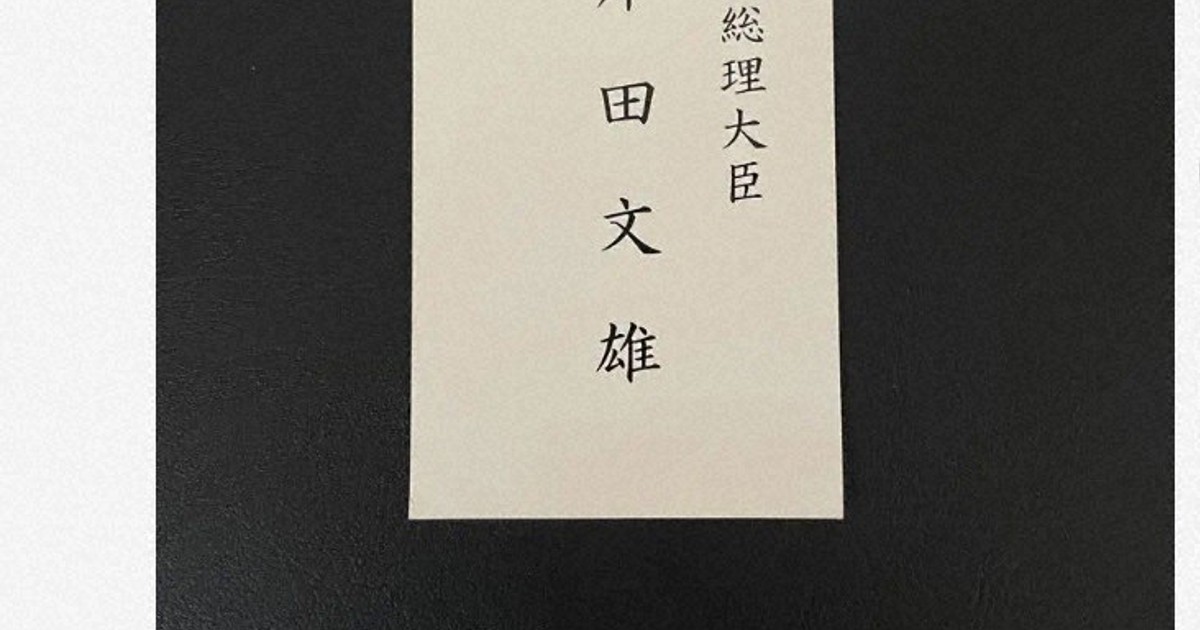 総理大臣
田文雄